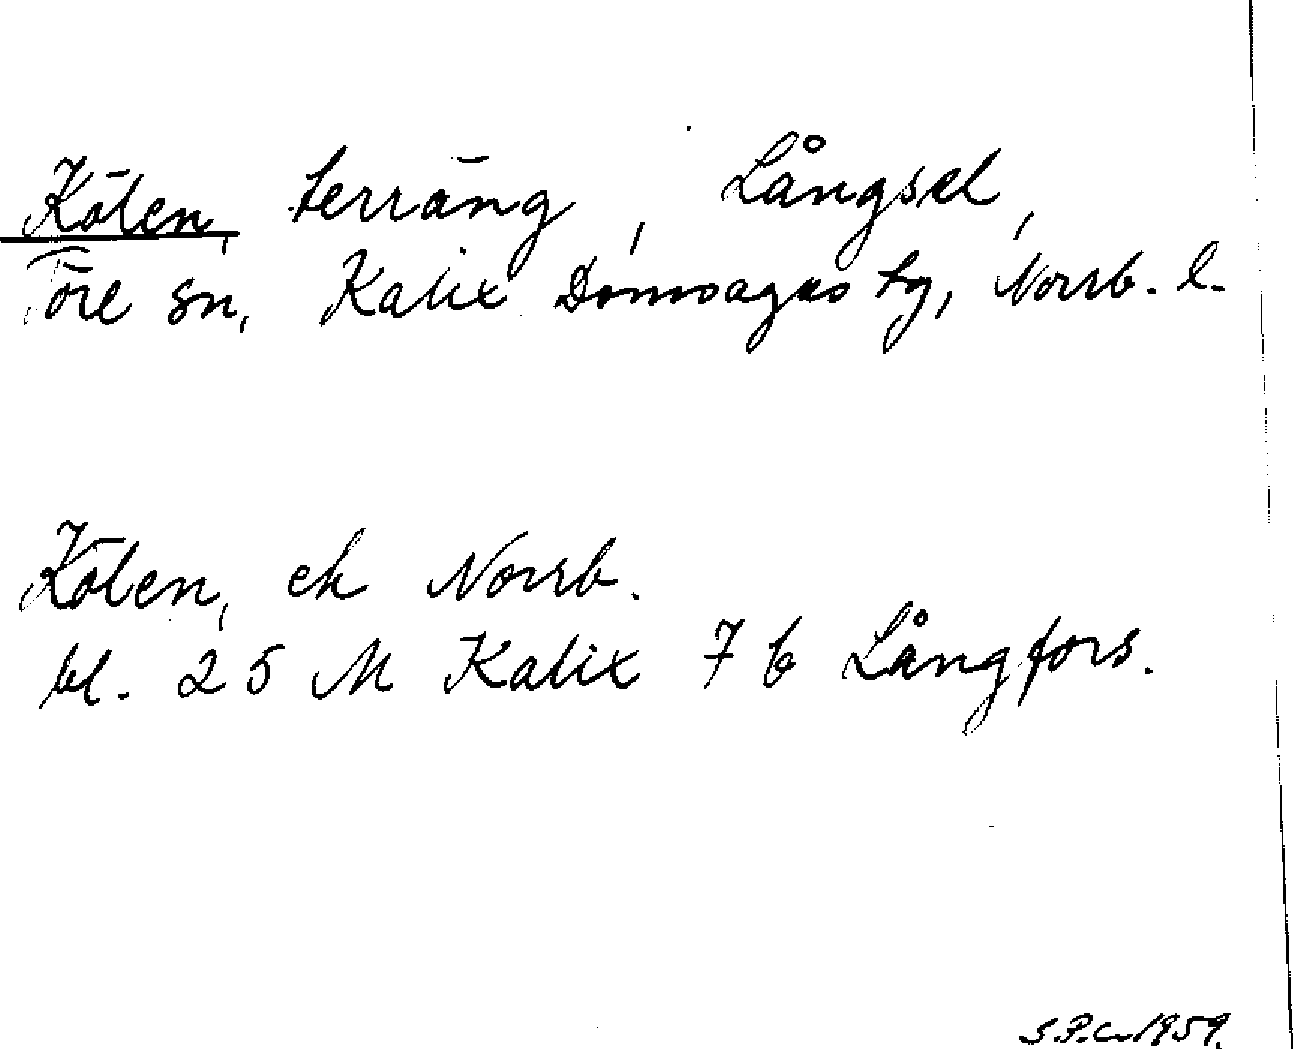 Kölen, terräng, Långsel,
Töre sn, Kalix Domsagas tg, Norrb. l.
Kölen, ek Norrb.
bl. 25 M Kalix 7 b Långfors.
S.P.C. 1959.